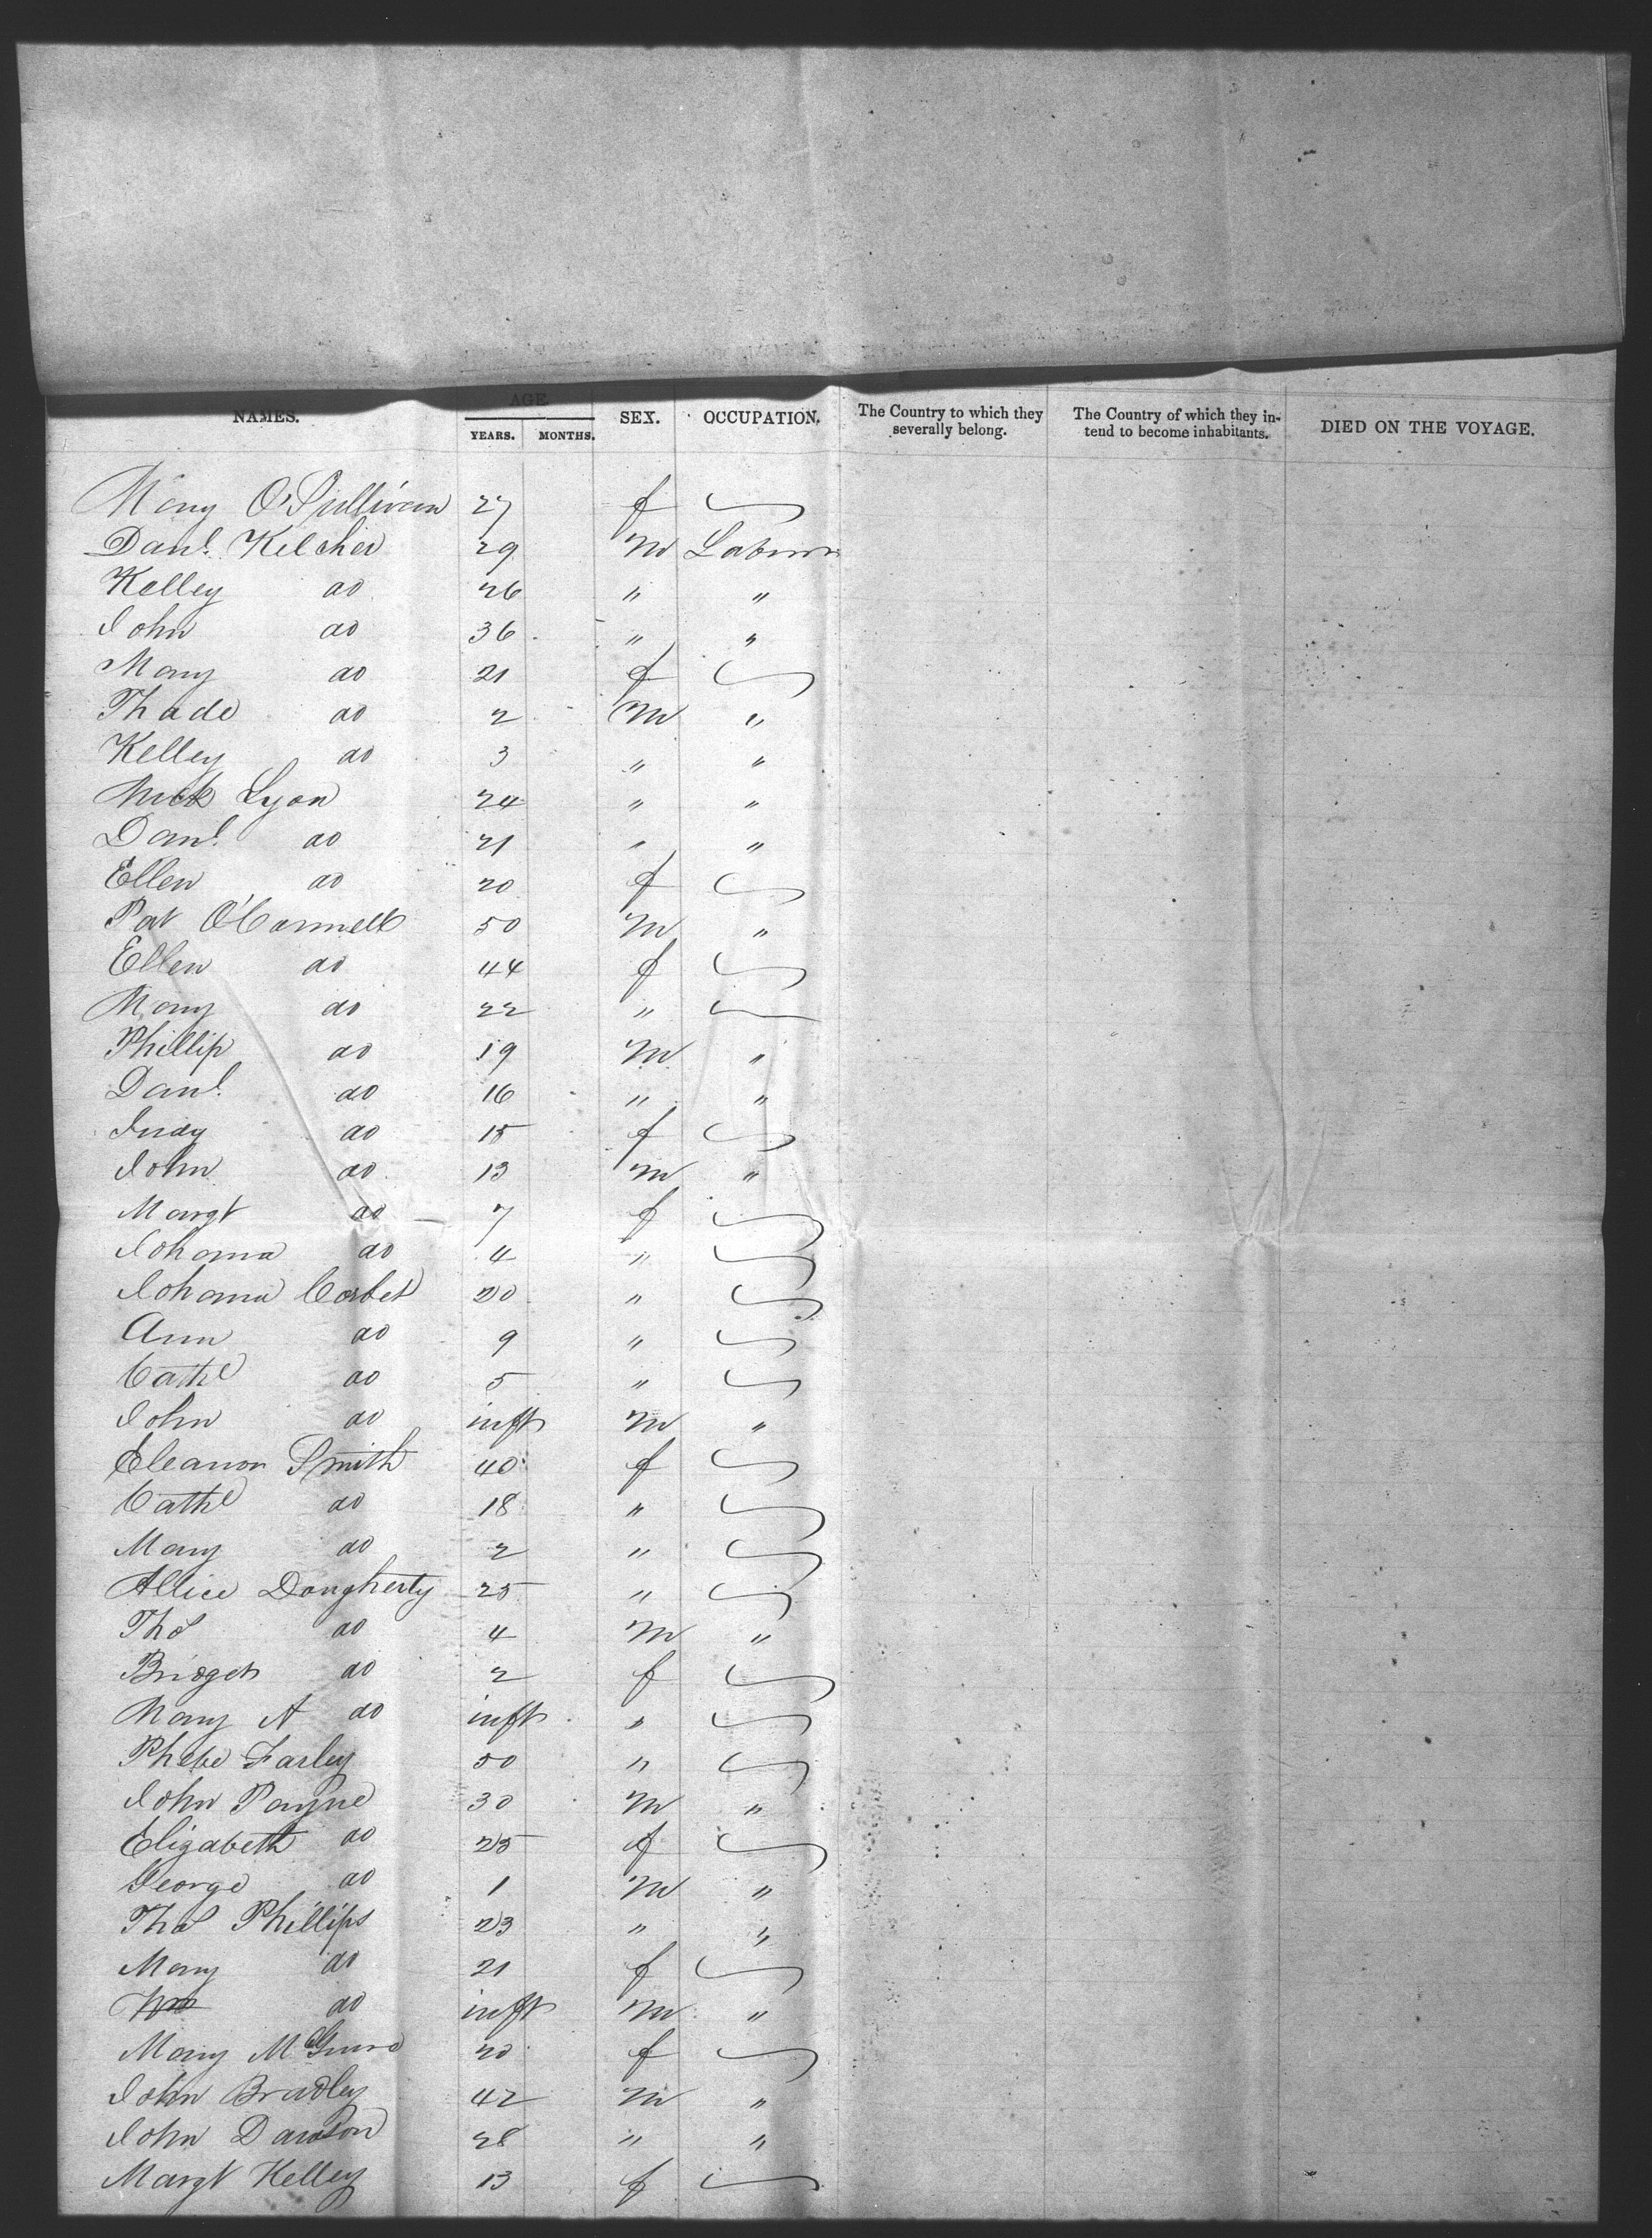 NAMES. AGE. SEX. OCCUPATION. The Country to which they severally belong. The Country of which they in-tend to become inhabitants. DIED ON THE VOYAGE.
YEARS. MONTHS.
Mary O'Sullivan 27 f
Danl. Kelcher 29 m Labourer
Kelley do 26 " "
John do 36 " "
Mary do 21 f
Thade do 2 m "
Kelley do 3 " "
Mick Lyon 24 " "
Danl. do 21 " "
Ellen do 20 f
Pat O'Connell 50 m "
Ellen do 44 f
Mary do 22 "
Phillip do 19 m "
Danl. do 16 " "
Judy do 15 f
John do 13 m "
Margt do 7 f
Johana do 4 "
Johana Corbet 20 "
Ann do 9 "
Cathe do 5 "
John do inft m "
Eleanor Smith 40 f
Cathe do 18 "
Mary do 2 "
Allice Dougherty 25 "
Thos do 4 m "
Bridget do 2 f
Mary A do inft "
Phebe Farley 50 "
John Payne 30 m "
Elizabeth do 25 f
George do 1 m "
Thos Phillips 23 " "
Mary do 21 f
Wm do inft m "
Mary 20 f
John Bradley 42 m "
John Dawson 28 " "
Margt Kelley 13 f